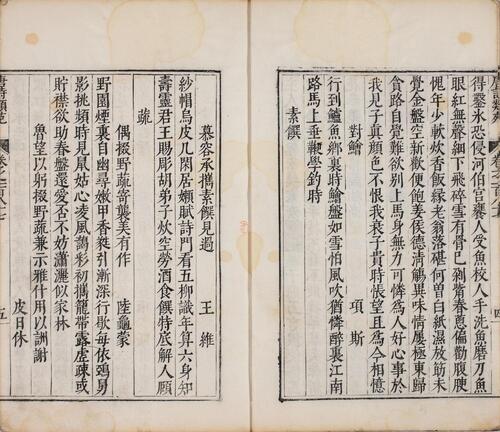 得鑿氷恐侵河伯宮饔人受魚校人手洗魚磨刀魚
眼紅無聲細下飛碎雪有骨巳剁觜春蔥偏勸腹腴
愧年少軟炊香飯緣老翁落碪何曾白紙濕放筯未
覺金盤空新歡便飽姜侯德清觴異味情屢極東歸
貪路自覺難欲別上馬身無力可憐為人好心事於
我見子真顏色不恨我衰子貴時悵望且為今相憶
對鱠 項斯
行到鱸魚鄉裏時鱠盤如雪怕風吹猶憐醉裏江南
路馬上垂鞭學釣時
素饌
慕容承攜素饌見過 王維
紗帽烏皮几閑居嬾賦詩門看五柳識年算六身知
壽靈君王賜彫胡弟子炊空勞酒食饌特底解人願
蔬
偶掇野蔬寄襲美有作 陸龜蒙
野園煙裏自幽尋嫩甲香蕤引漸深行歇每依鴉舅
影挑頻時見鼠姑心凌風藹彩初攜籠帶露虛疎或
貯襟欲助春盤還愛否不妨瀟灑似家林
魯望以躬掇野蔬兼示雅什用以詶謝
皮日休
五
四